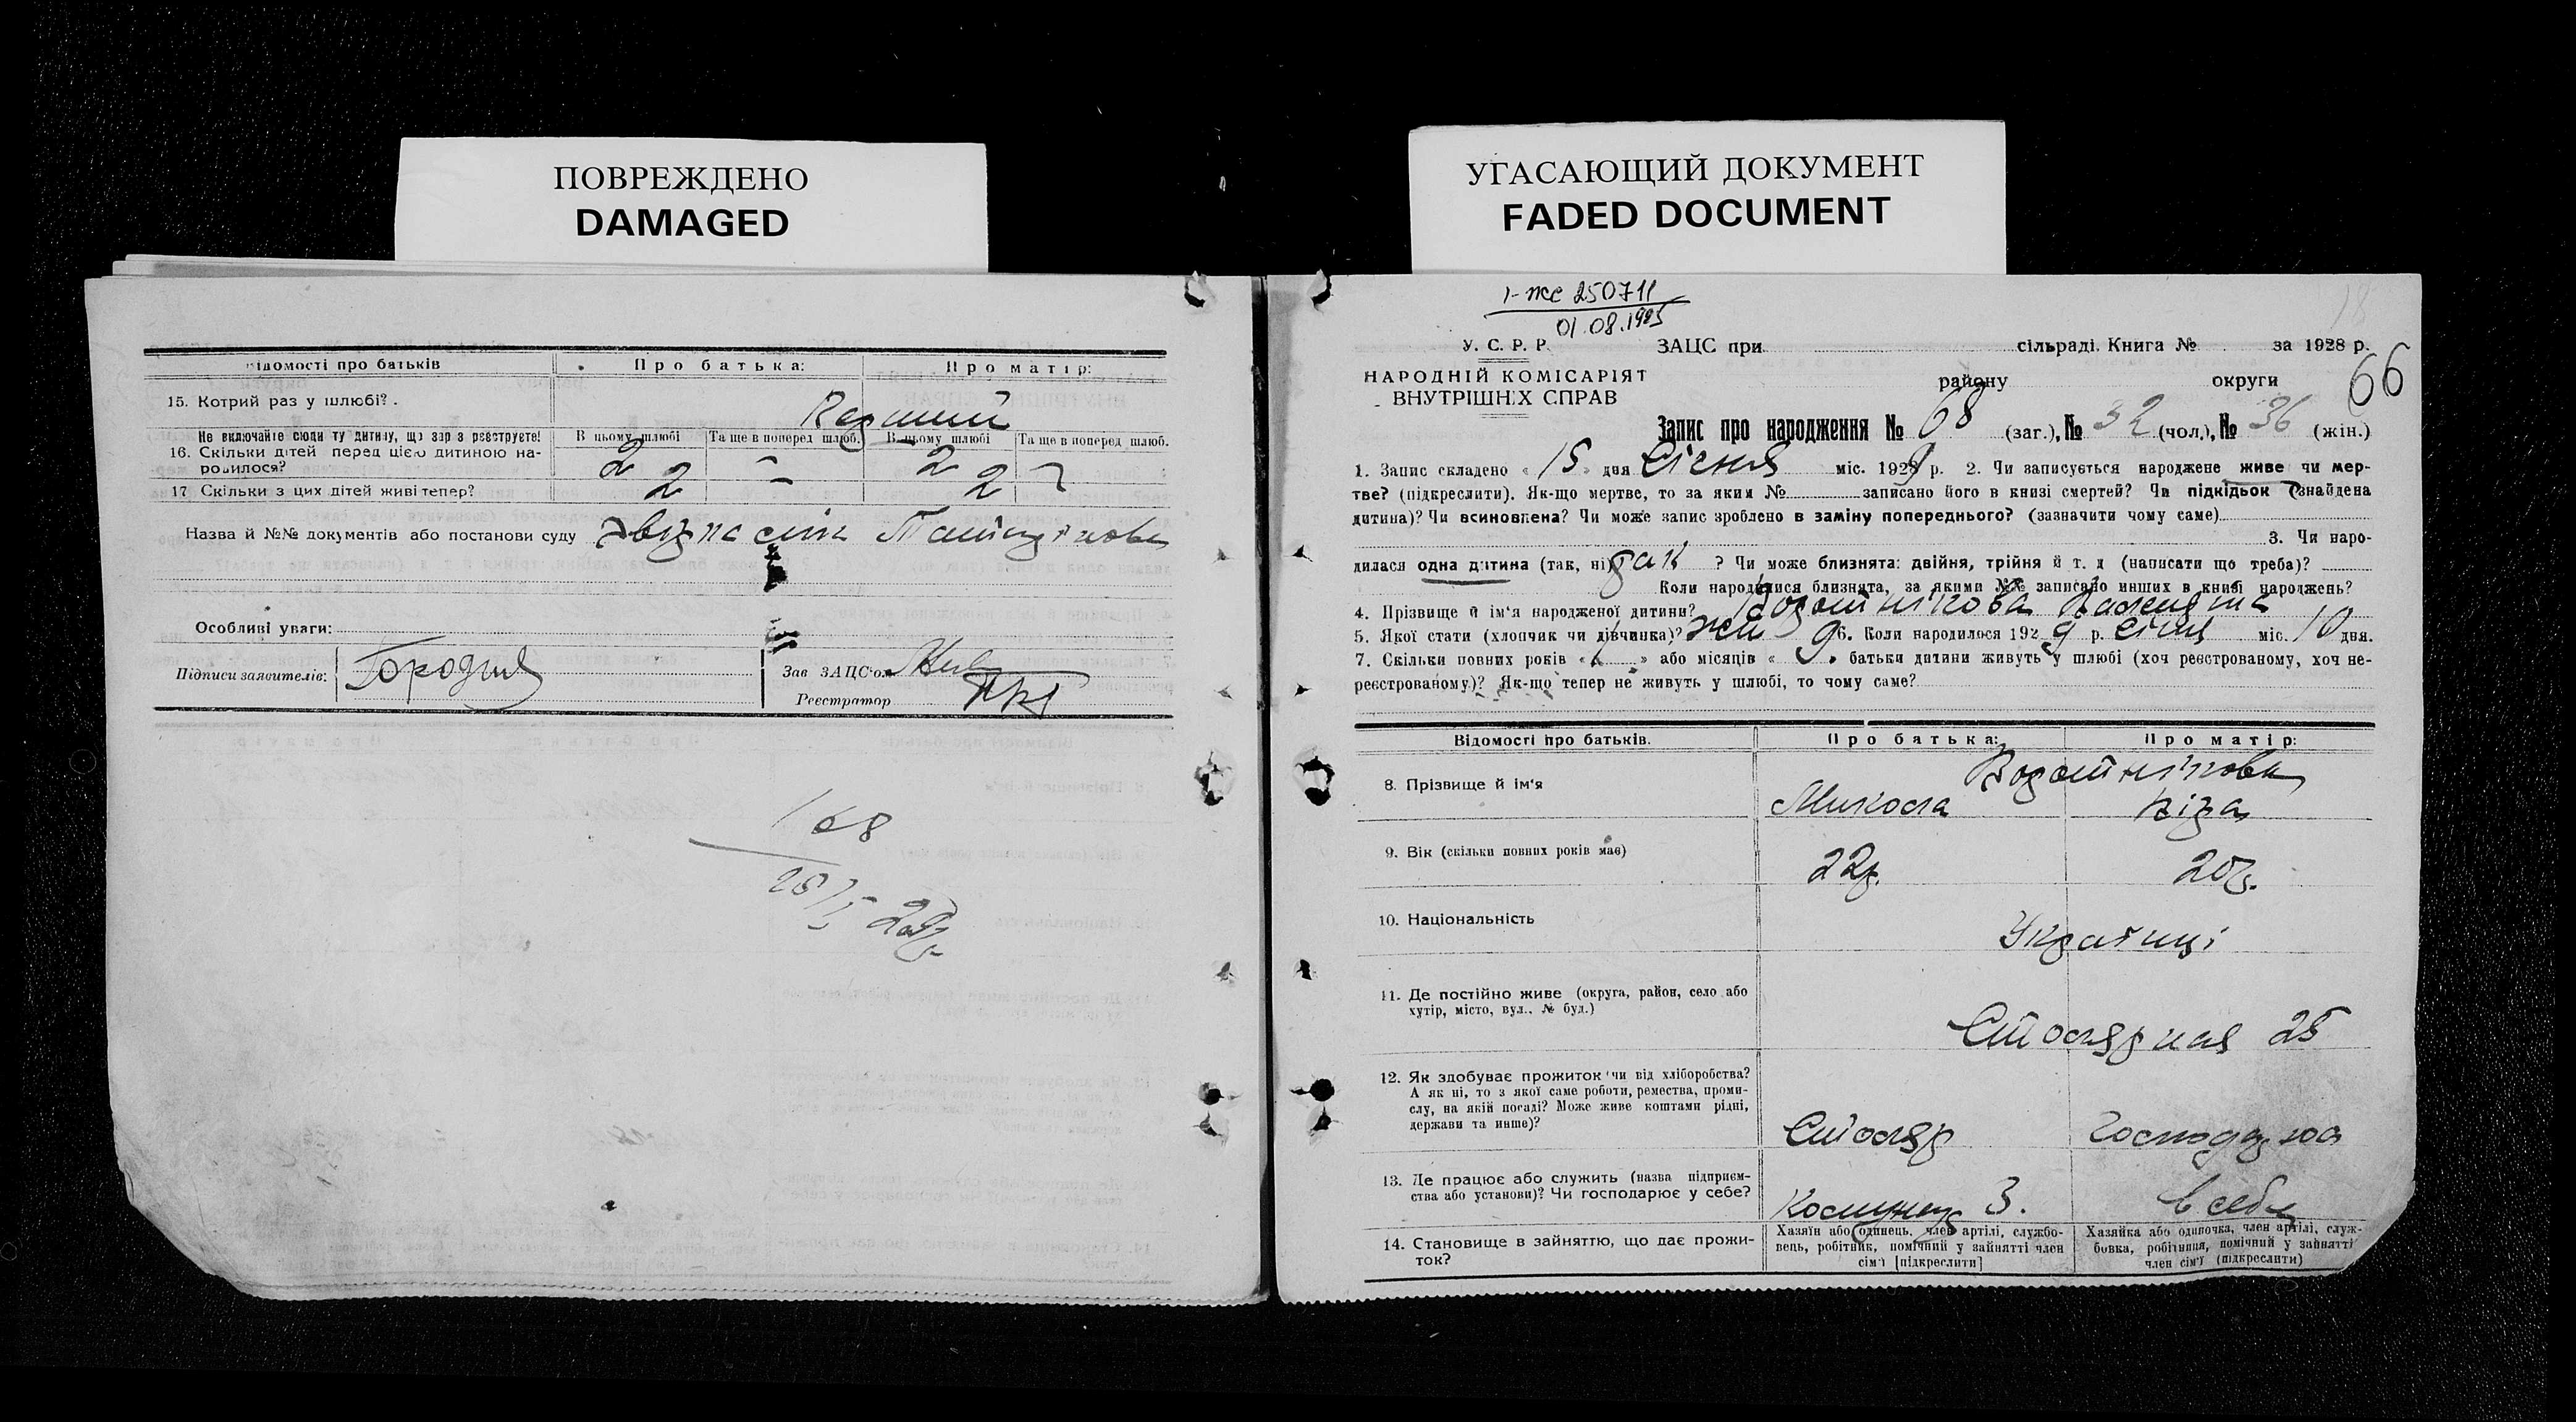 ПОВРЕЖДЕНО
DAMAGED
Відомості про батьків
Про батька:
Про матір:
15. Котрий раз у шлюбі?.
Не включайте сюди ту дитину, що зар з реєструєте!
В цьому шлюбі
Та ще в поперед шлюб.
В цьому шлюбі
Та ще в поперед шлюб.
16. Скільки дітей перед цією дитиною на-
родилося?
2 - 2
17 Скільки з цих дітей живі тепер?
2 - 2
Назва й №№ документів або постанови суду
Особливі уваги:
Підписи заявителів:
Зав ЗАЦС'ом
Реєстратор
168
УГАСАЮЩИЙ ДОКУМЕНТ
FADED DOCUMENT
250711
01.08.1985
У. С. Р. Р.
ЗАЦС при сільраді. Книга № за 1928 р.
66
НАРОДНІЙ КОМІСАРІЯТ
ВНУТРІШНІХ СПРАВ
району округи
Запис про народження № 68 (заг.), № 32 (чол.), № 36 (жін.)
1. Запис складено « 15 » дня Січня міс. 1929 р. 2. Чи записується народжене живе чи мер-
тве? (підкреслити). Як-що мертве, то за яким № записано його в книзі смертей? Чи підкідьок (знайдена
дитина)? Чи всиновлена? Чи може запис зроблено в заміну попереднього? (зазначити чому саме)
3. Чи наро-
дилася одна дитина (так, ні) так ? Чи може близнята: двійня, трійня й т. д (написати що треба)?
Коли народилися близнята, за якими №№ записано инших в книзі народжень?
4. Прізвище й ім'я народженої дитини? Водотнікова Валентина
5. Якої стати (хлопчик чи дівчинка)? жін 6. Коли народилося 1929 р. січня міс. 10 дня.
7. Скільки повних років « » або місяців « 9 » батьки дитини живуть у шлюбі (хоч реєстрованому, хоч не-
реєстрованому)? Як-що тепер не живуть у шлюбі, то чому саме?
Відомості про батьків.
Про батька:
Про матір:
8. Прізвище й ім'я
Водотнікови
Микола Віра
9. Вік (скільки повних років має)
22р. 20р.
10. Національність
Українці
11. Де постійно живе (округа, район, село або
хутір, місто, вул., № буд.)
Столярная 25
12. Як здобуває прожиток чи від хліборобства?
А як ні, то з якої саме роботи, ремества, проми-
слу, на якій посаді? Може живе коштами рідні,
держави та инше)?
Столяр
13. Де працює або служить (назва підприєм-
ства або установи)? Чи господарює у себе?
в себе
14. Становище в зайняттю, що дає прожи-
ток?
Хазяїн або одинець, член артілі, службо-
вець, робітник, помічний у зайнятті член
сім'ї [підкреслити]
Хазяйка або одиночка, член артілі, служ-
бовка, робітниця, помічний у зайнятті
член сім'ї (підкреслити)